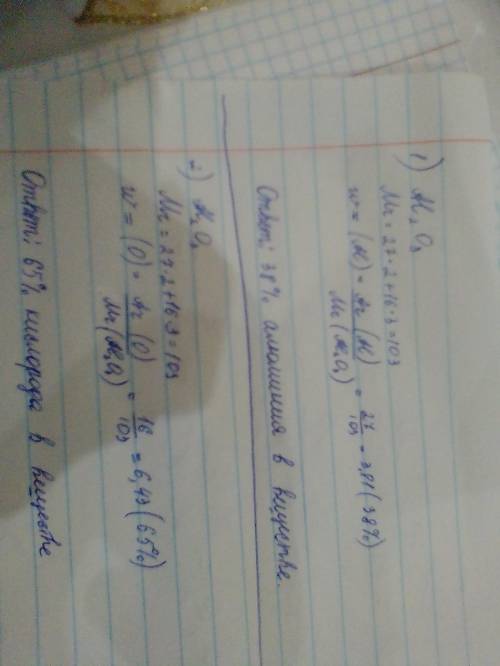 1) Al₂O₃
Mr = 27·2+16·3=103
w = (Al) = Ar (Al) / Mr (Al₂O₃) = 27 / 103 = 3,81 (38%)
Ответ: 38% алюминия в веществе.
2) Al₂O₃
Mr = 27·2+16·3=103
w = (O) = Ar (O) / Mr (Al₂O₃) = 16 / 103 = 6,43 (65%)
Ответ: 65% кислорода в веществе